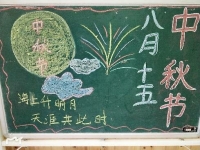 中秋节
八月十五
中秋节
海上升明月
天涯共此时